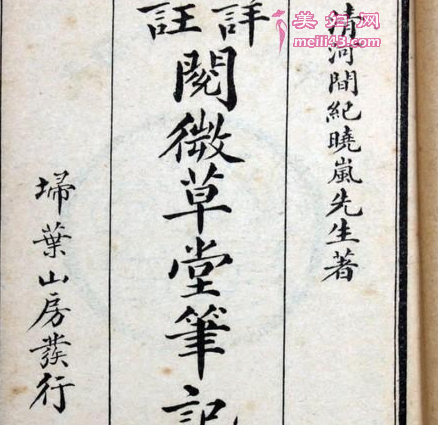 清河間紀曉嵐先生著
詳註
閱微草堂筆記
埽葉山房發行
美妆网
meili43.com